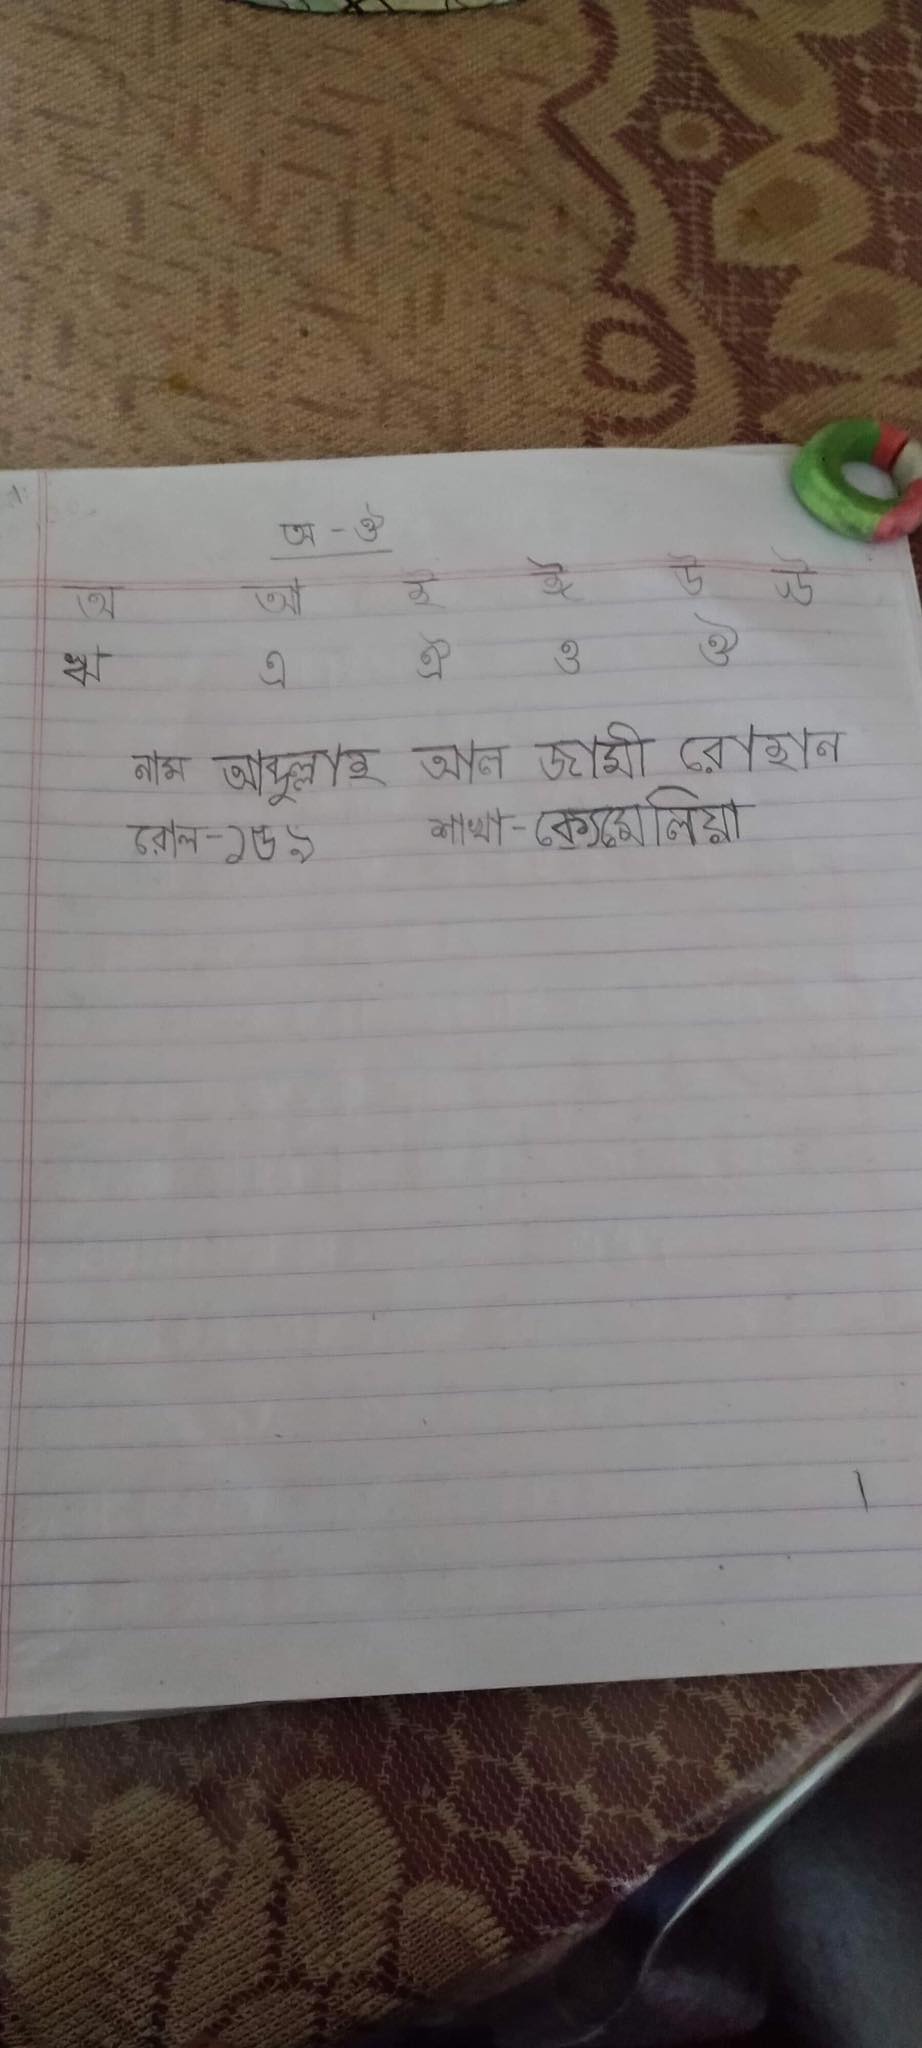 অ - ঔ
অ আ ই ঈ উ ঊ
ঋ এ ঐ ও ঔ
নাম আব্দুল্লাহ আল জামী রোহান
রোল-১৬১ শাখা-ক্যেমেলিয়া